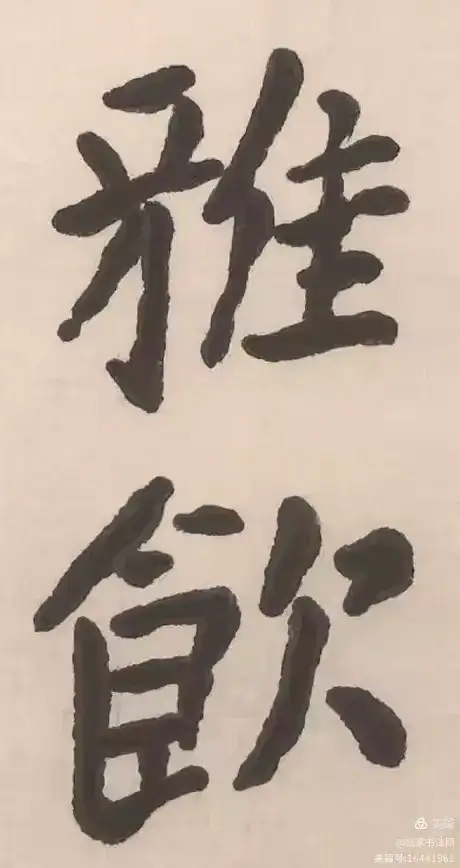 雅
飲
美篇
@儒家书法网
美篇号:16441961